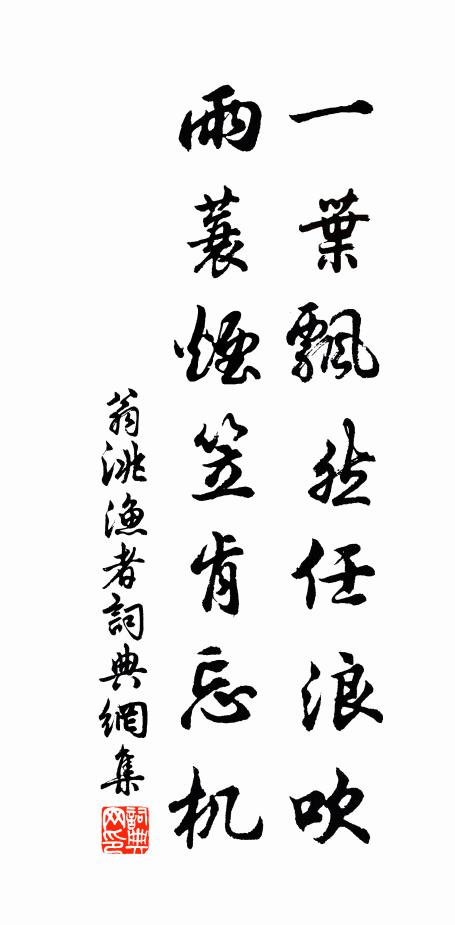 一葉飄然任浪吹
雨蓑煙笠肯忘机
翁洮漁者詞典網集
詞典网印